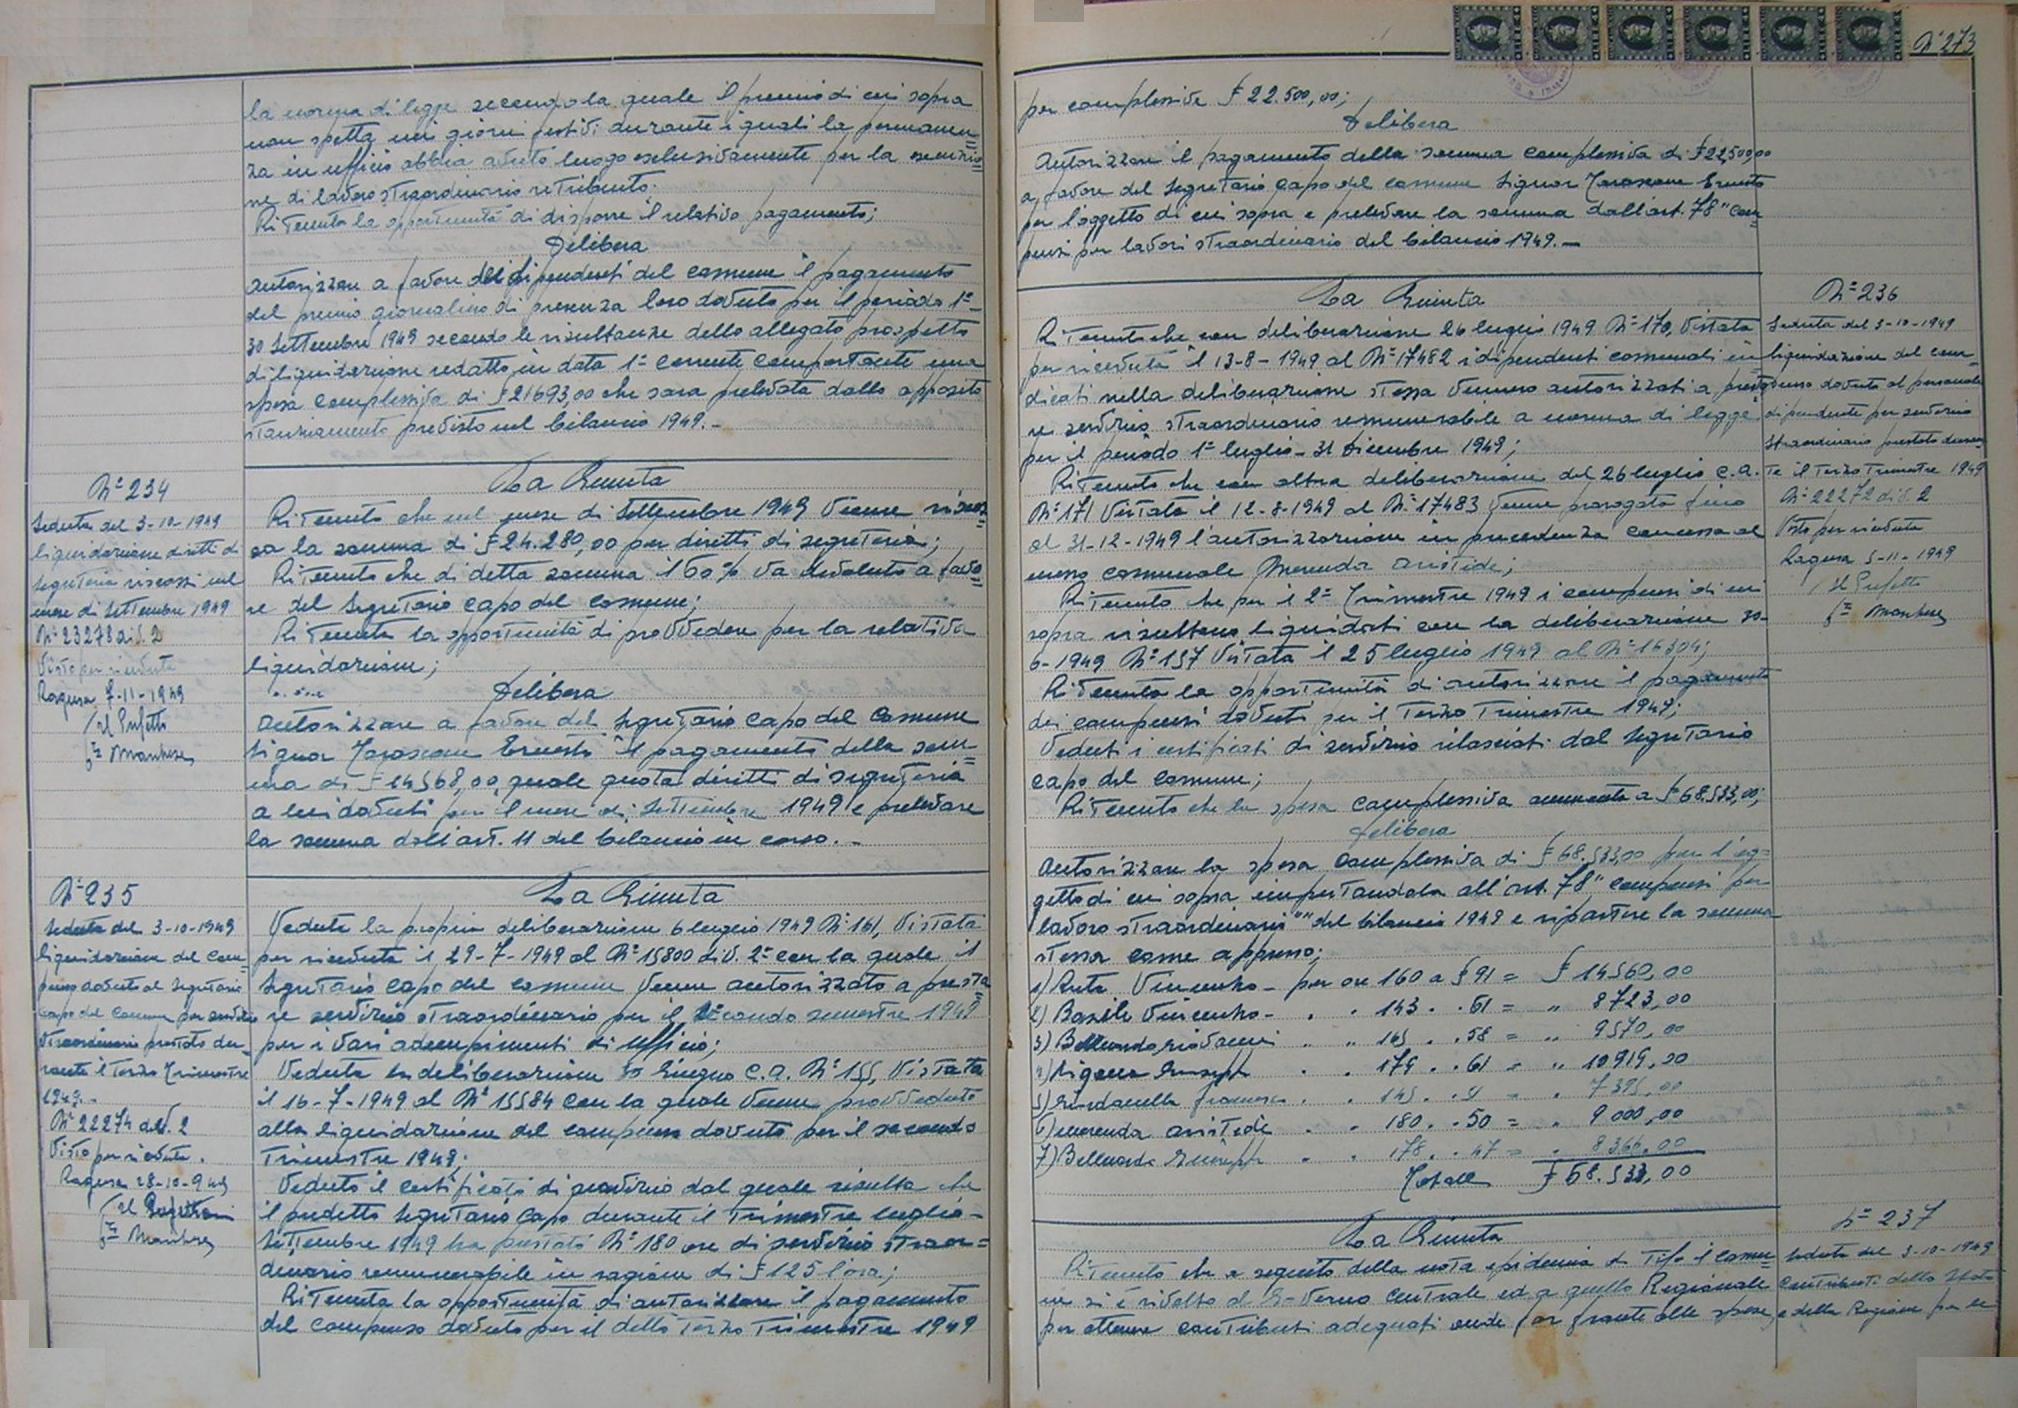 la norma di legge secondo la quale il premio di cui sopra
non spetta nei giorni festivi durante i quali la permanen=
za in ufficio abbia avuto luogo esclusivamente per la esecuzio=
ne di lavoro straordinario retribuito.
Ritenuta la opportunità di disporre il relativo pagamento;
Delibera
Autorizzare a favore dei dipendenti del comune il pagamento
del premio giornaliero di presenza loro dovuto per il periodo 1°-
30 Settembre 1949 secondo le risultanze dello allegato prospetto
di liquidazione redatto in data 1° corrente comportante una
spesa complessiva di £ 21693,00 che sarà prelevata dallo apposito
stanziamento previsto nel bilancio 1949.-
N° 234
Seduta del 3-10-1949
liquidazione diritti di
segreteria riscossi nel
mese di Settembre 1949
N° 23278 div. 2
Visto per ricevuta
Ragusa 7-11-1949
Il Prefetto
La Giunta
Ritenuto che nel mese di Settembre 1949 venne riscos=
sa la somma di £ 24.280,00 per diritti di segreteria;
Ritenuto che di detta somma il 60% va devoluto a favo=
re del Segretario capo del comune;
Ritenuta la opportunità di provvedere per la relativa
liquidazione;
Delibera
Autorizzare a favore del Segretario capo del comune
Signor Tarascone Ernesto il pagamento della som=
ma di £ 14568,00 quale quota diritti di segreteria
a lui dovuti per il mese di Settembre 1949 e prelevare
la somma dall'art. 11 del bilancio in corso.-
N° 235
Seduta del 3-10-1949
liquidazione del com=
penso dovuto al Segretario
capo del comune per servizio
straordinario prestato du=
rante il Terzo Trimestre
1949.-
N° 22274 div. 2
Visto per ricevuta.
Ragusa 28-10-949
Il Prefetto
La Giunta
Veduta la propria deliberazione 6 luglio 1949 N° 161, vistata
per ricevuta il 29-7-1949 al N° 15800 div. 2° con la quale il
Segretario capo del comune venne autorizzato a presta=
re servizio straordinario per il secondo semestre 1949
per i vari adempimenti di ufficio;
Veduta la deliberazione 30 Giugno c.a. N° 155, vistata
il 16-7-1949 al N° 15584 con la quale venne provveduto
alla liquidazione del compenso dovuto per il secondo
Trimestre 1949;
Veduto il certificato di servizio dal quale risulta che
il predetto Segretario capo durante il Trimestre luglio-
Settembre 1949 ha prestato N° 180 ore di servizio straor=
dinario remunerabile in ragione di £ 125 l'ora;
Ritenuta la opportunità di autorizzare il pagamento
del compenso dovuto per il detto Terzo Trimestre 1949
N° 273
per complessive £ 22.500,00;
Delibera
Autorizzare il pagamento della somma complessiva di £ 22.500,00
a favore del Segretario capo del comune Signor Tarascone Ernesto
per l'oggetto di cui sopra e prelevare la somma dall'art. 78 "com=
pensi per lavori straordinario del bilancio 1949.-
La Giunta
Ritenuto che con deliberazione 26 luglio 1949 N° 170, vistata
per ricevuta il 13-8-1949 al N° 17482 i dipendenti comunali in=
dicati nella deliberazione stessa vennero autorizzati a presta=
re servizio straordinario remunerabile a norma di legge
per il periodo 1° luglio-31 Dicembre 1949;
Ritenuto che con altra deliberazione del 26 luglio c.a.
N° 171 vistata il 12-8-1949 al N° 17483 venne prorogato fino
al 31-12-1949 l'autorizzazione in precedenza concessa al
messo comunale Merenda Aristide;
Ritenuto che per il 2° Trimestre 1949 i compensi di cui
sopra risultano liquidati con la deliberazione 30-
6-1949 N° 157 vistata il 25 luglio 1949 al N° 16304;
Ritenuta la opportunità di autorizzare il pagamento
dei compensi dovuti per il Terzo Trimestre 1949;
Veduti i certificati di servizio rilasciati dal Segretario
capo del comune;
Ritenuto che la spesa complessiva ammonta a £ 68.533,00;
Delibera
Autorizzare la spesa complessiva di £ 68.533,00 per l'og=
getto di cui sopra imputandola all'art. 78 "compensi per
lavoro straordinari" del bilancio 1949 e ripartire la somma
stessa come appresso;
1) Vincenzo - per ore 160 a £ 91 = £ 14560,00
2) Basile Vincenzo - . . 143 . . 61 = „ 8723,00
3) Giovanni . „ 165 . . 58 = „ 9570,00
4) Giuseppe . . 179 . . 61 = „ 10919,00
5) Francesco . . 145 . . 51 = . 7395,00
6) Merenda Aristide . . 180 . . 50 = . 9000,00
7) Giuseppe . . 178 . . 47 = . 8366,00
Totale £ 68.533,00
N° 236
Seduta del 3-10-1949
liquidazione del com=
penso dovuto al personale
dipendente per servizio
straordinario prestato duran=
te il Terzo Trimestre 1949
N° 22272 div. 2
Visto per ricevuta
Ragusa 5-11-1949
Il Prefetto
La Giunta
Ritenuto che a seguito della nota epidemia di Tifo il comu=
ne si è rivolto al Governo centrale ed a quello Regionale
per ottenere contributi adeguati onde far fronte alle spese,
N° 237
Seduta del 3-10-1949
Contributi dello Stato
e della Regione per la